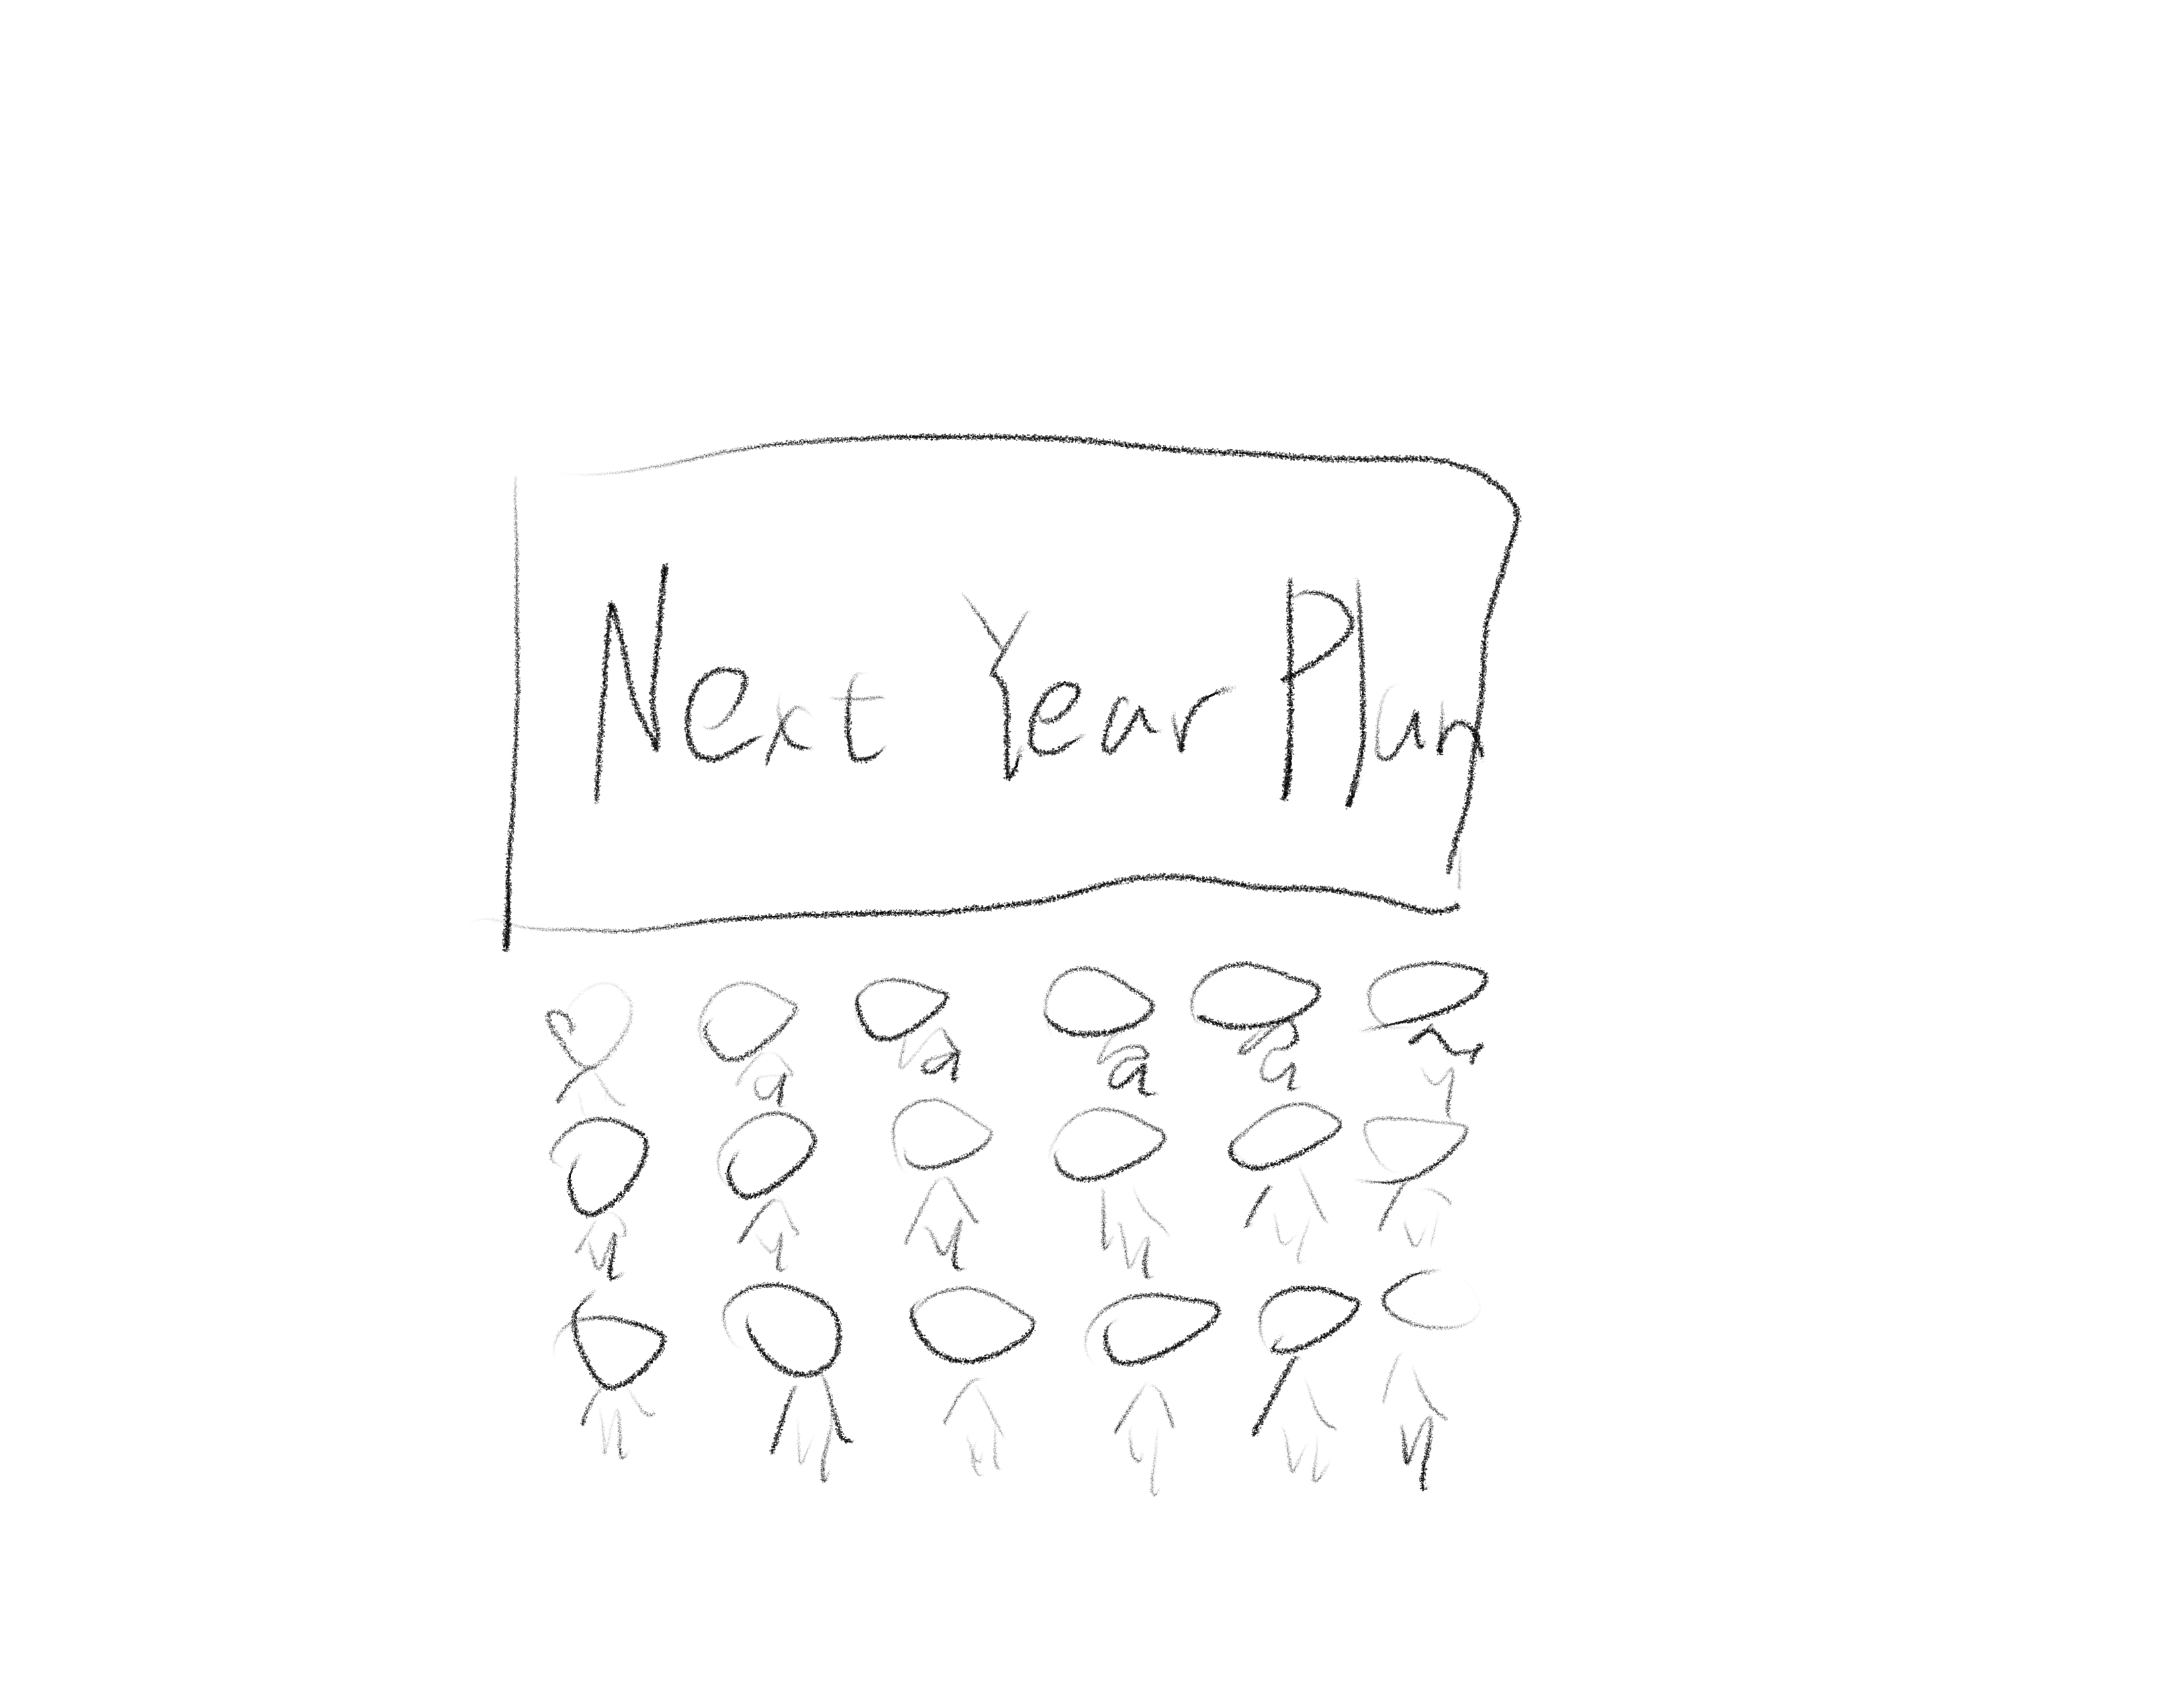 Next Year Plan